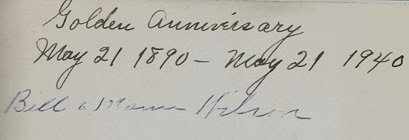 Golden Anniversary
May 21 1890 - May 21 1940
Bill & Mame Wilson